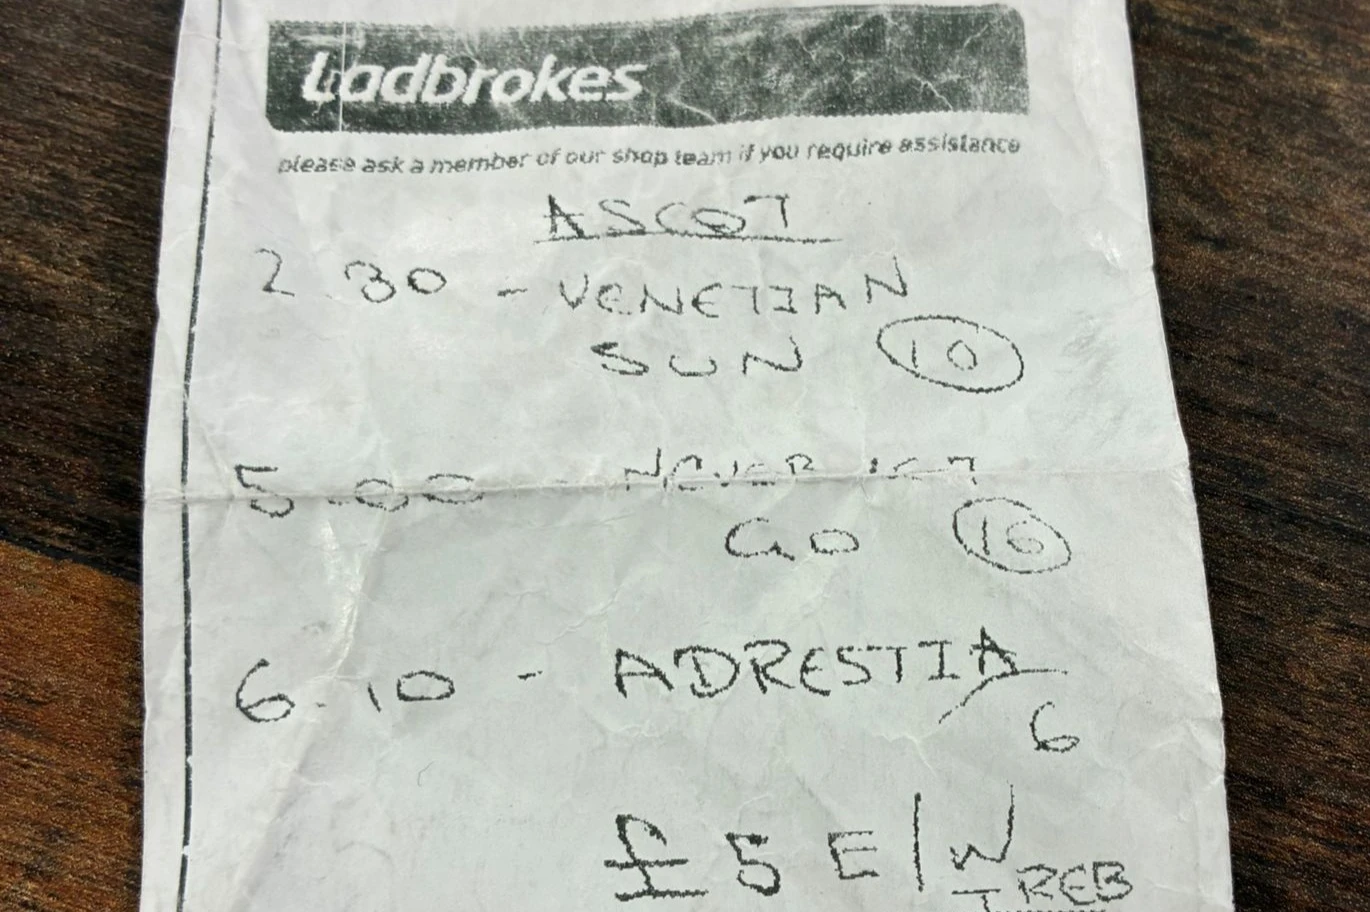 Ladbrokes
please ask a member of our shop team if you require assistance
ASCOT
2.30 - VENETIAN
SUN 10
5.00 - NEVER LET
GO 16
6.10 - ADRESTIA
6
£5 E/W
TREB